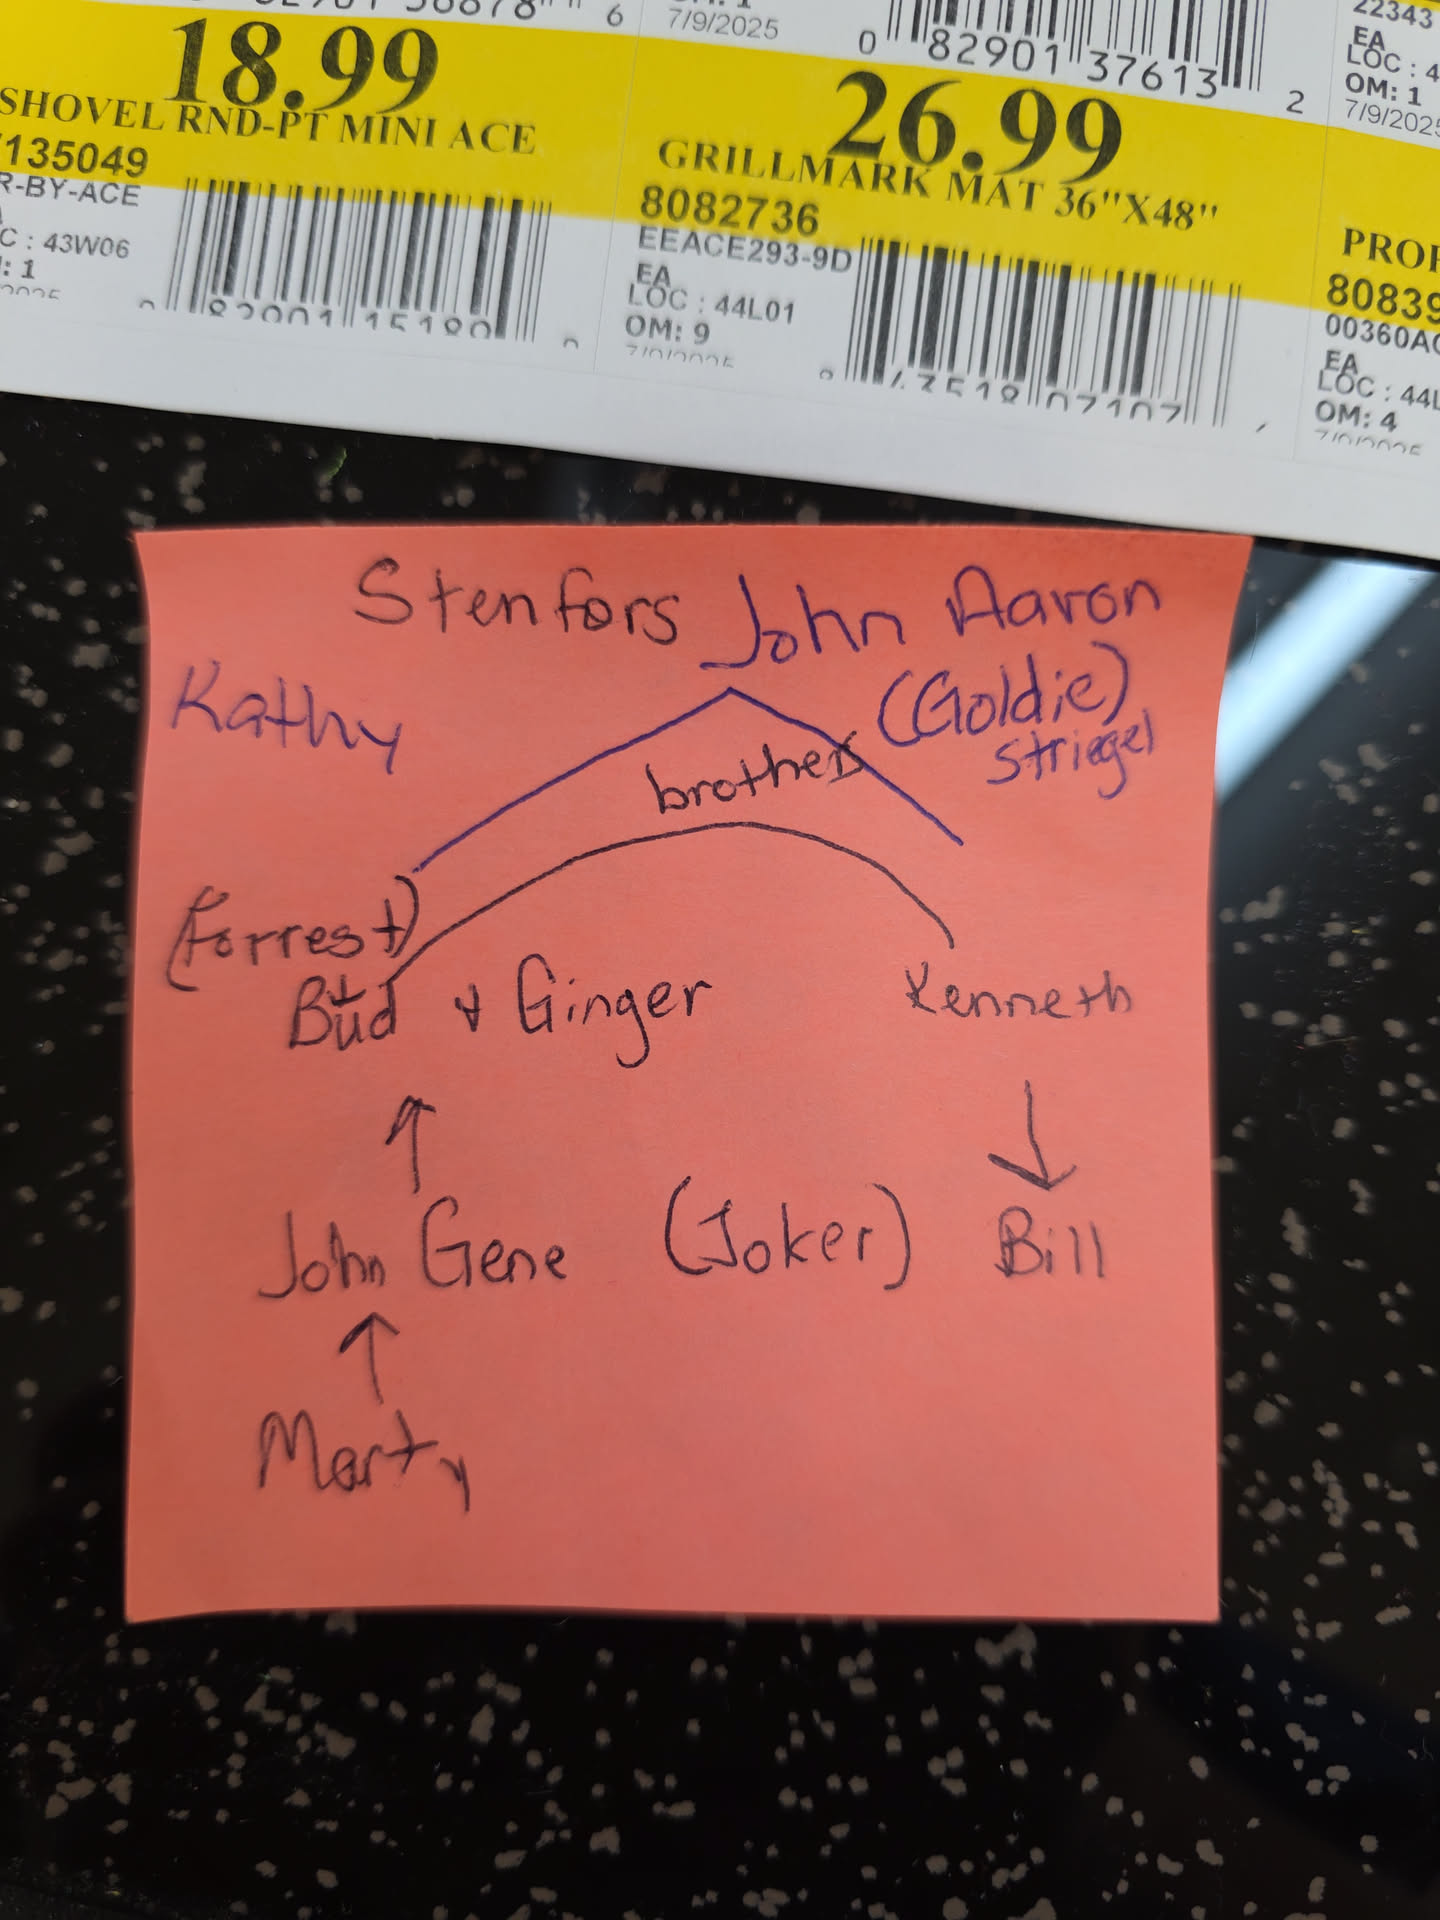 6
18.99
SHOVEL RND-PT MINI ACE
135049
R-BY-ACE
C : 43W06
: 1
7/9/2025
0 82901 37613 2
26.99
GRILLMARK MAT 36"X48"
8082736
EEACE293-9D
EA
LOC : 44L01
OM: 9
22343
EA
LOC : 4
OM: 1
7/9/2025
PROF
80839
00360AC
EA
LOC : 44L
OM: 4
Stenfors John Aaron
Kathy (Goldie)
Striegel
brothers
(Forrest)
Bud & Ginger Kenneth
John Gene (Joker) Bill
Marty